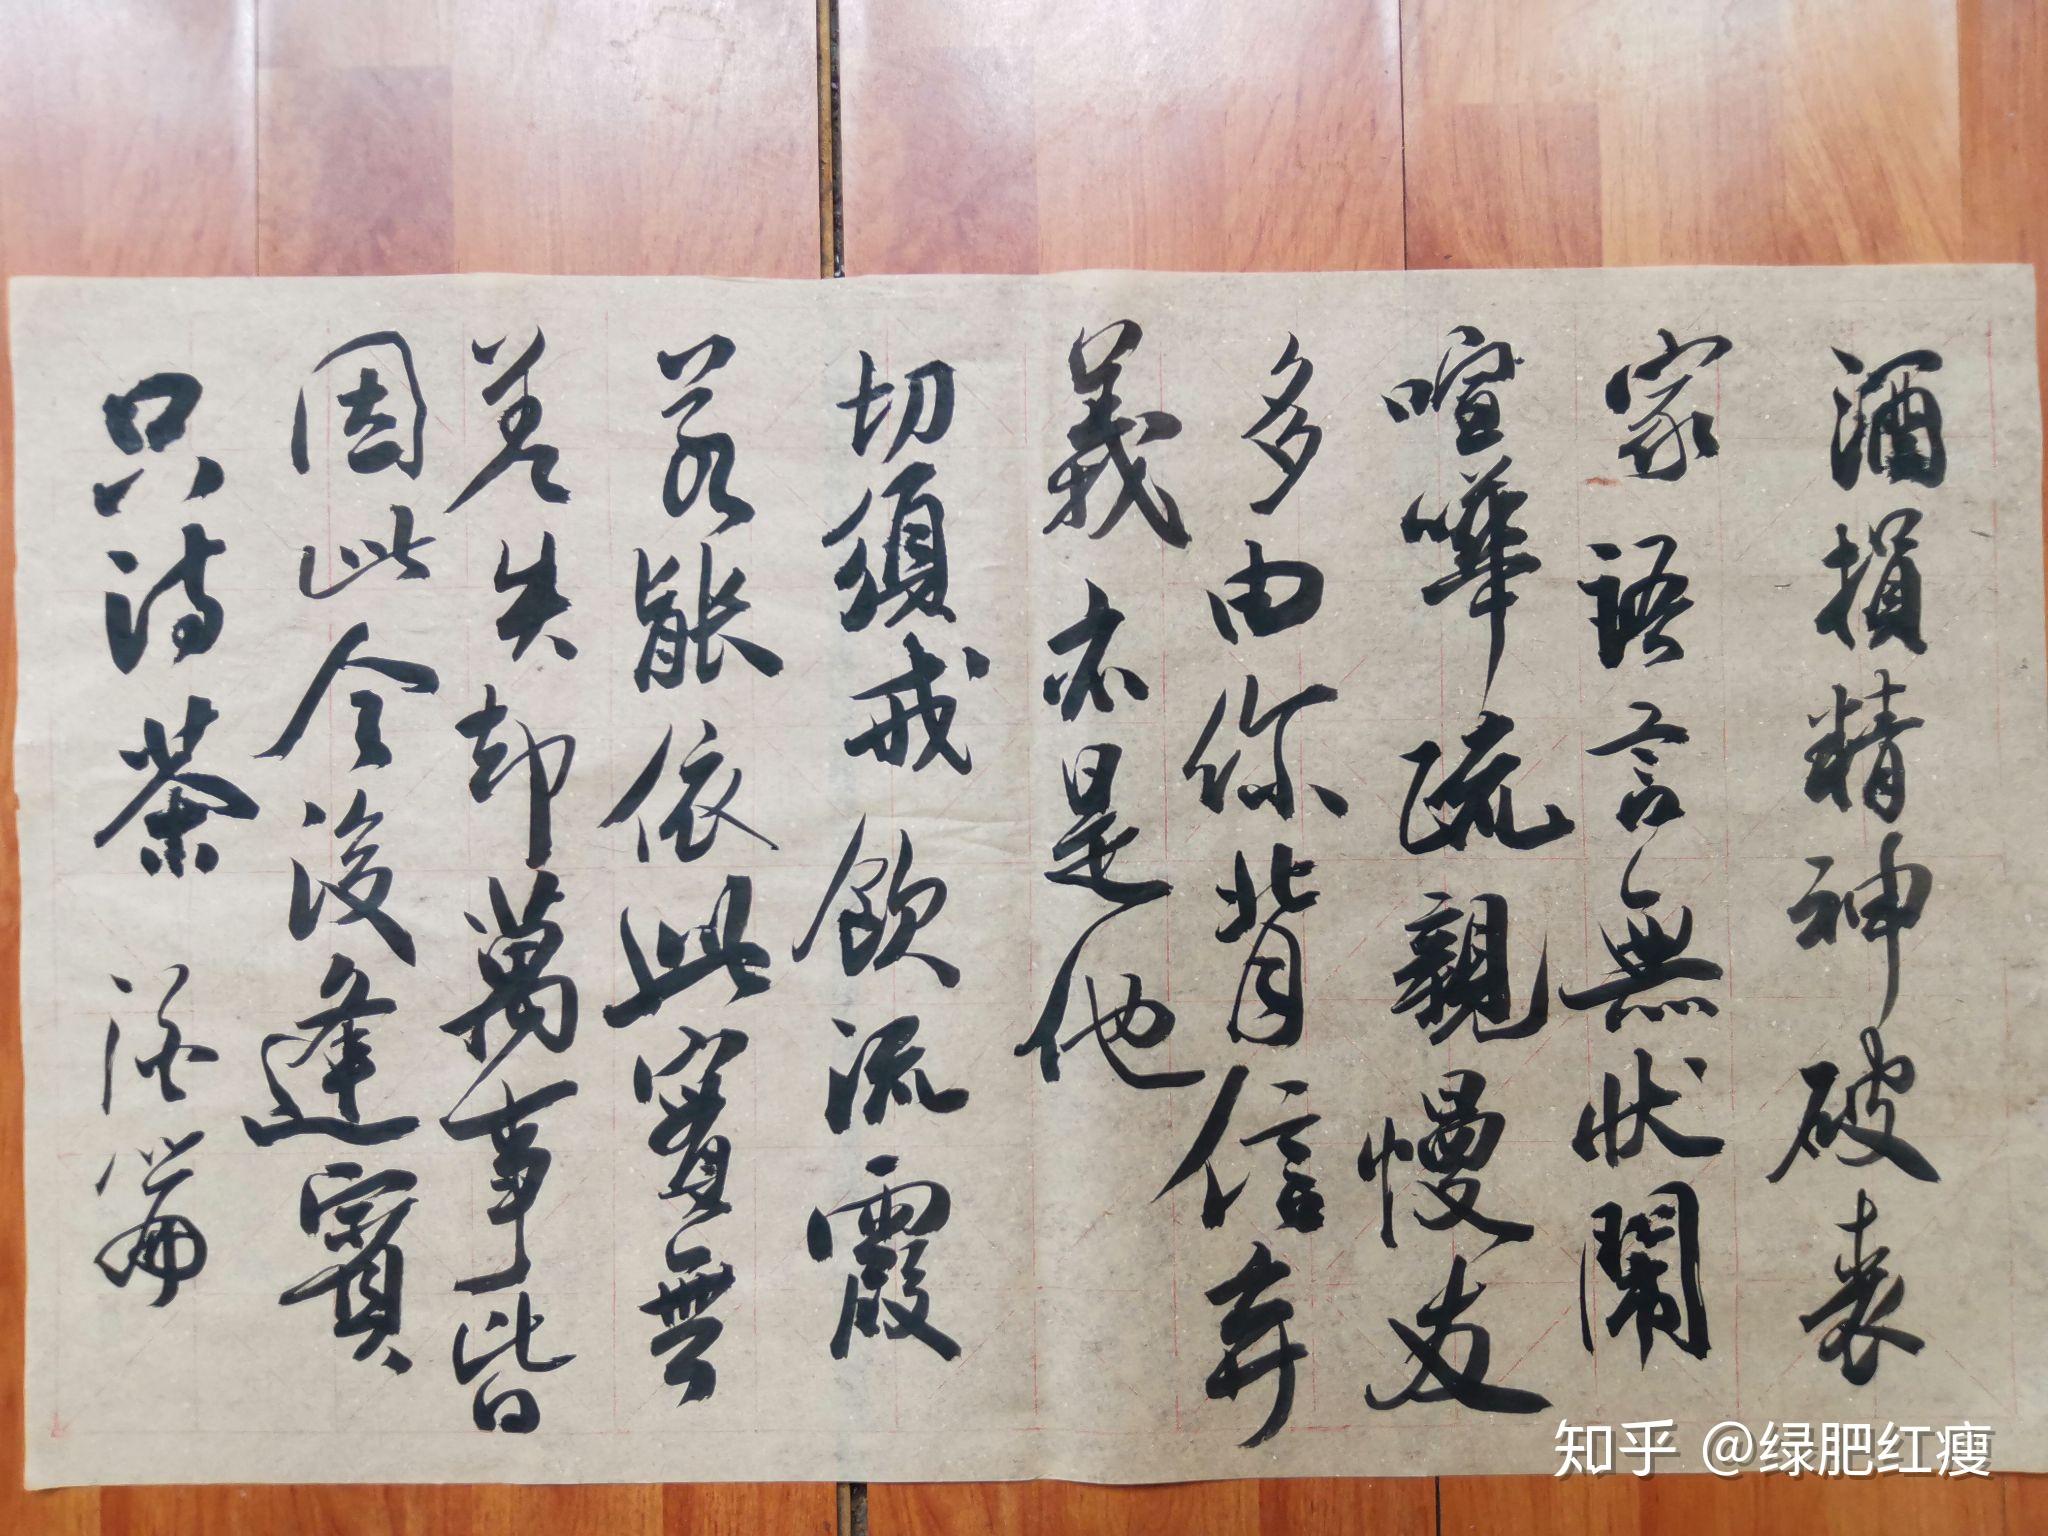 酒損精神破喪
家語言無狀鬧
喧嘩疏親慢友
多由你背信棄
義亦是他
切須戒飲流霞
若能依此實無
差失却萬事皆
因此今後逢賓
只待茶
酒篇
知乎 @绿肥红瘦